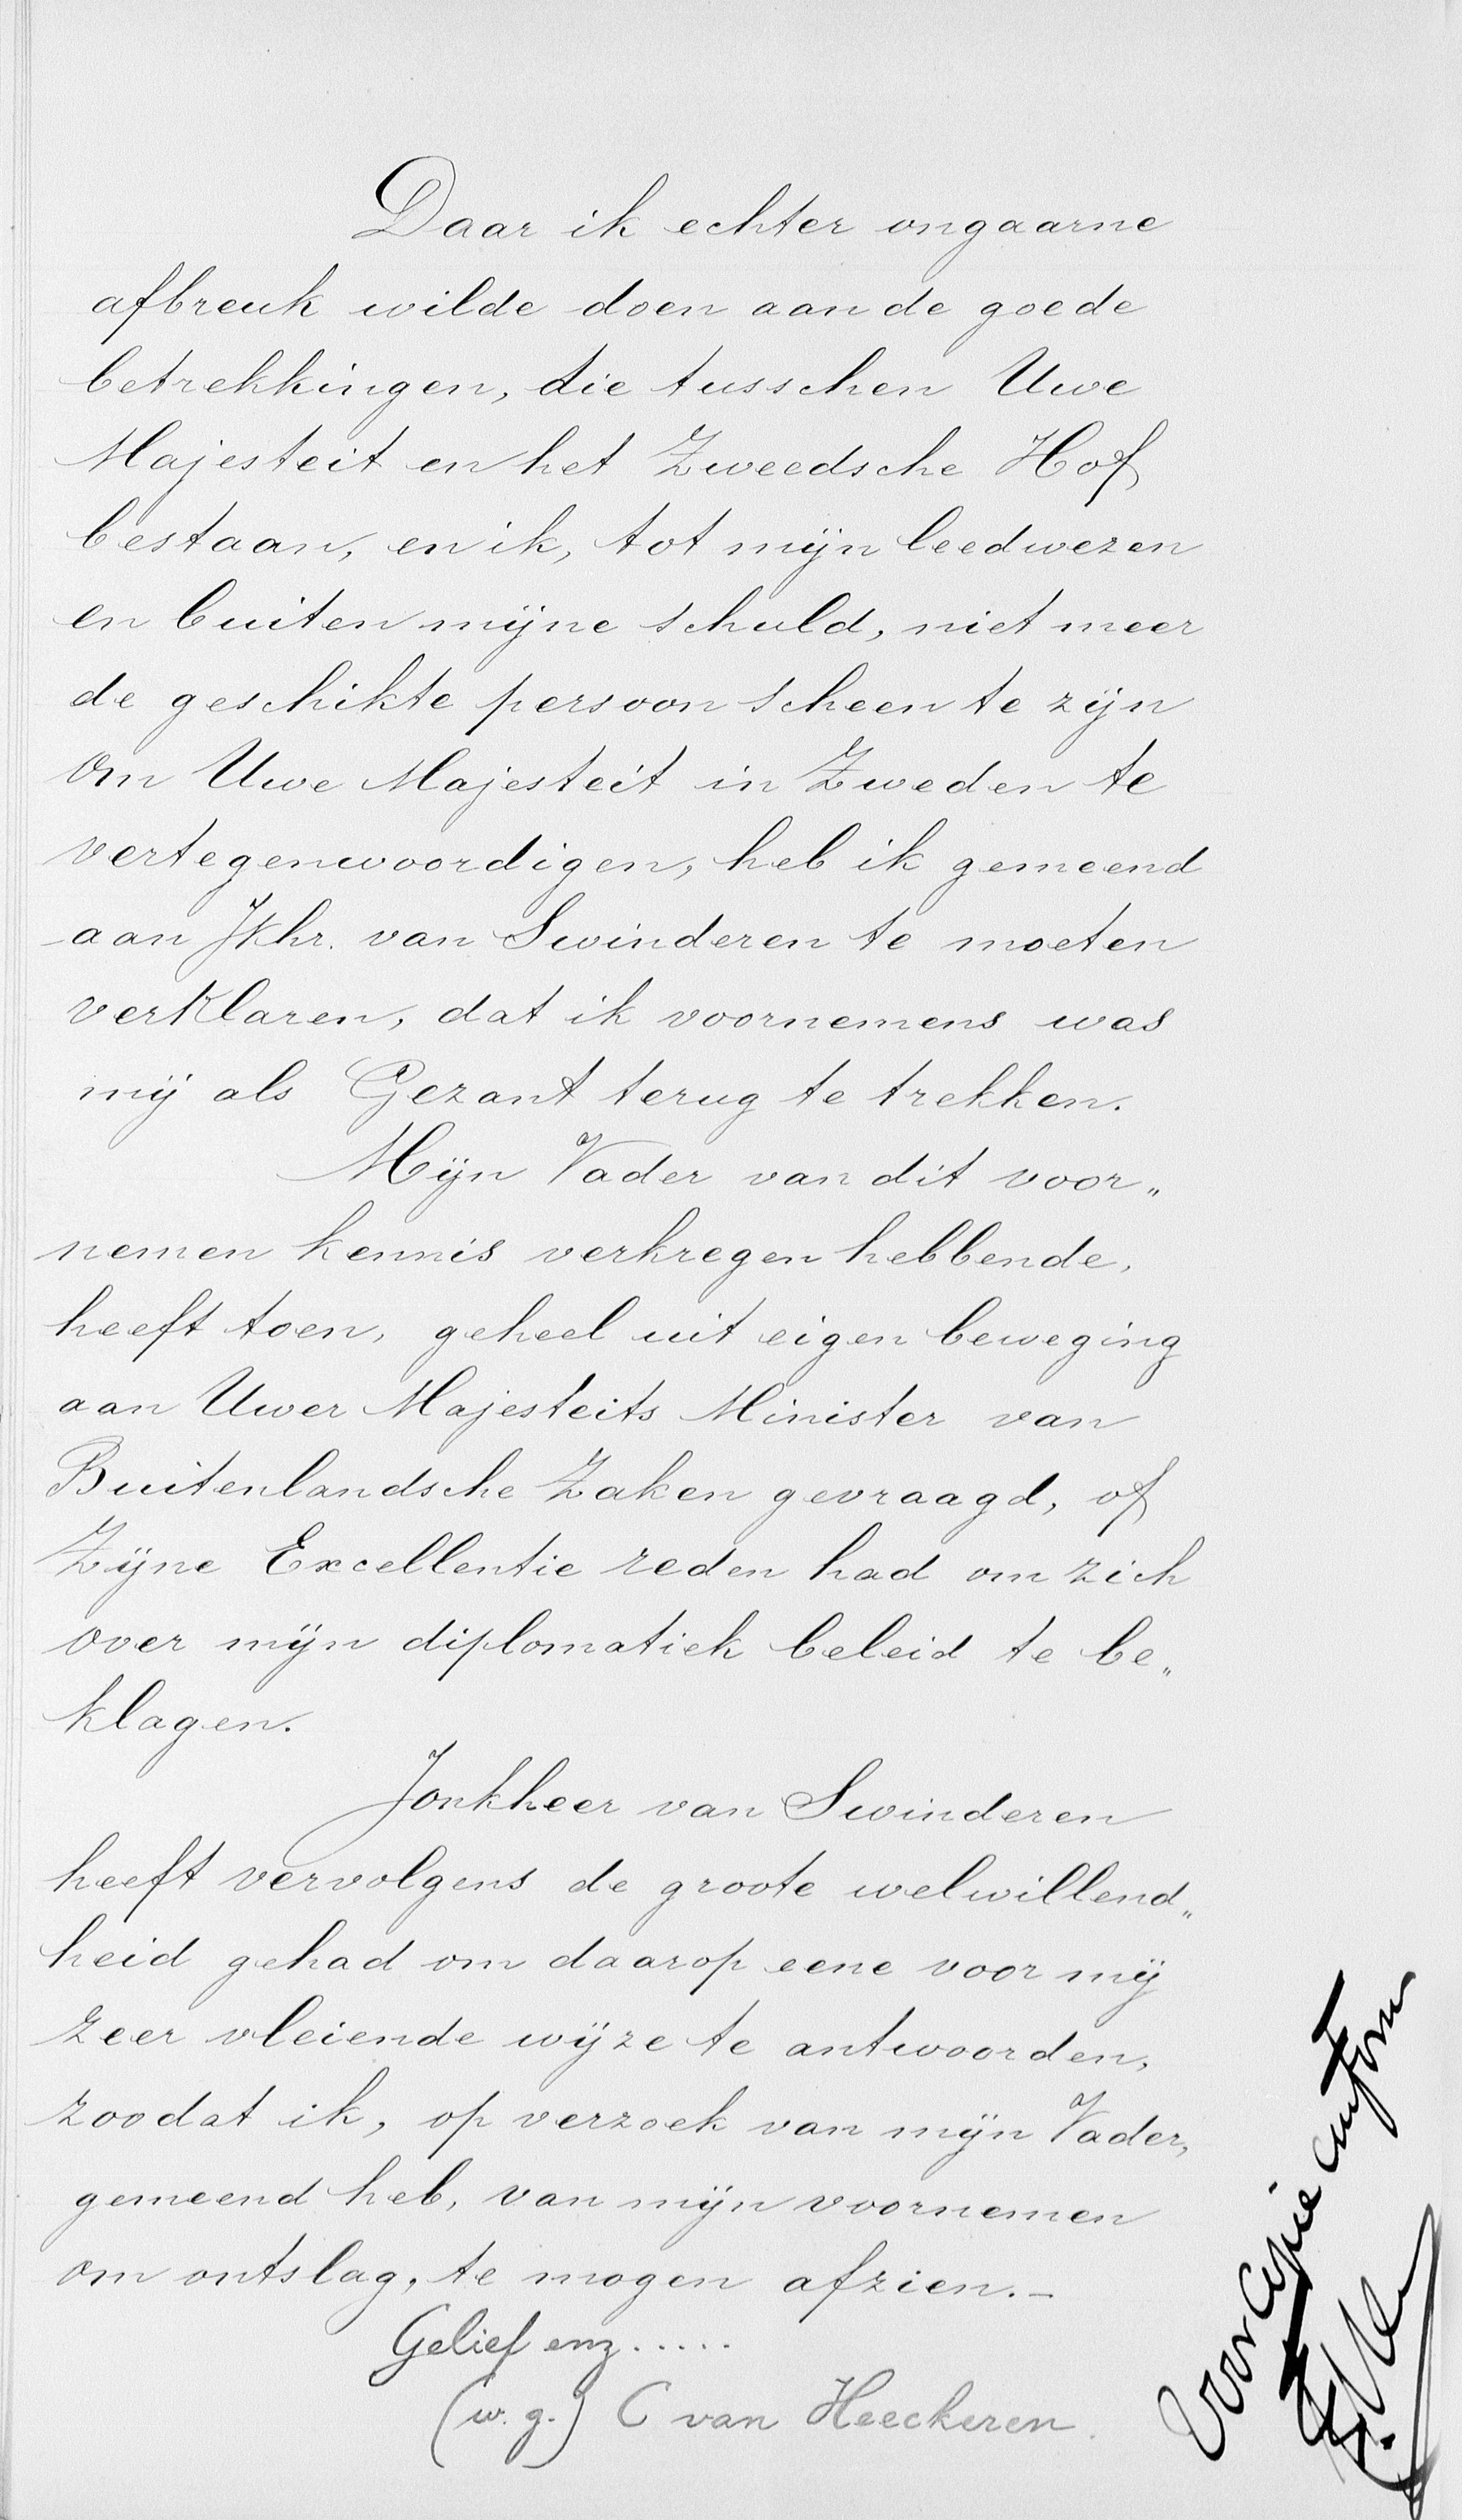 Daar ik echter ongaarne
afbreuk wilde doen aan de goede
betrekkingen, die tusschen Uwe
Majesteit en het Zweedsche Hof
bestaan, en ik, tot mijn leedwezen
en buiten mijne schuld, niet meer
de geschikte persoon scheen te zijn
om Uwe Majesteit in Zweden te
vertegenwoordigen, heb ik gemeend
aan Jkhr. van Swinderen te moeten
verklaren, dat ik voornemens was
mij als Gezant terug te trekken.
Mijn Vader van dit voor„
nemen kennis verkregen hebbende,
heeft toen, geheel uit eigen beweging
aan Uwer Majesteits Minister van
Buitenlandsche Zaken gevraagd, of
Zijne Excellentie reden had om zich
over mijn diplomatiek beleid te be„
klagen.
Jonkheer van Swinderen
heeft vervolgens de groote welwillend„
heid gehad om daarop eene voor mij
zeer vleiende wijze te antwoorden,
zoodat ik, op verzoek van mijn Vader,
gemeend heb, van mijn voornemen
om ontslag, te mogen afzien.—
Gelief enz.....
(w. g.) C van Heeckeren.
Voor copie conform